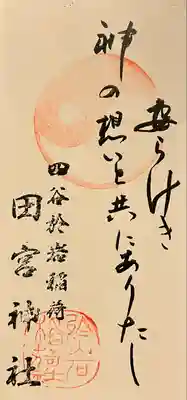 安らけき
神の想いと共にありたし
四谷於岩稲荷
田宮神社